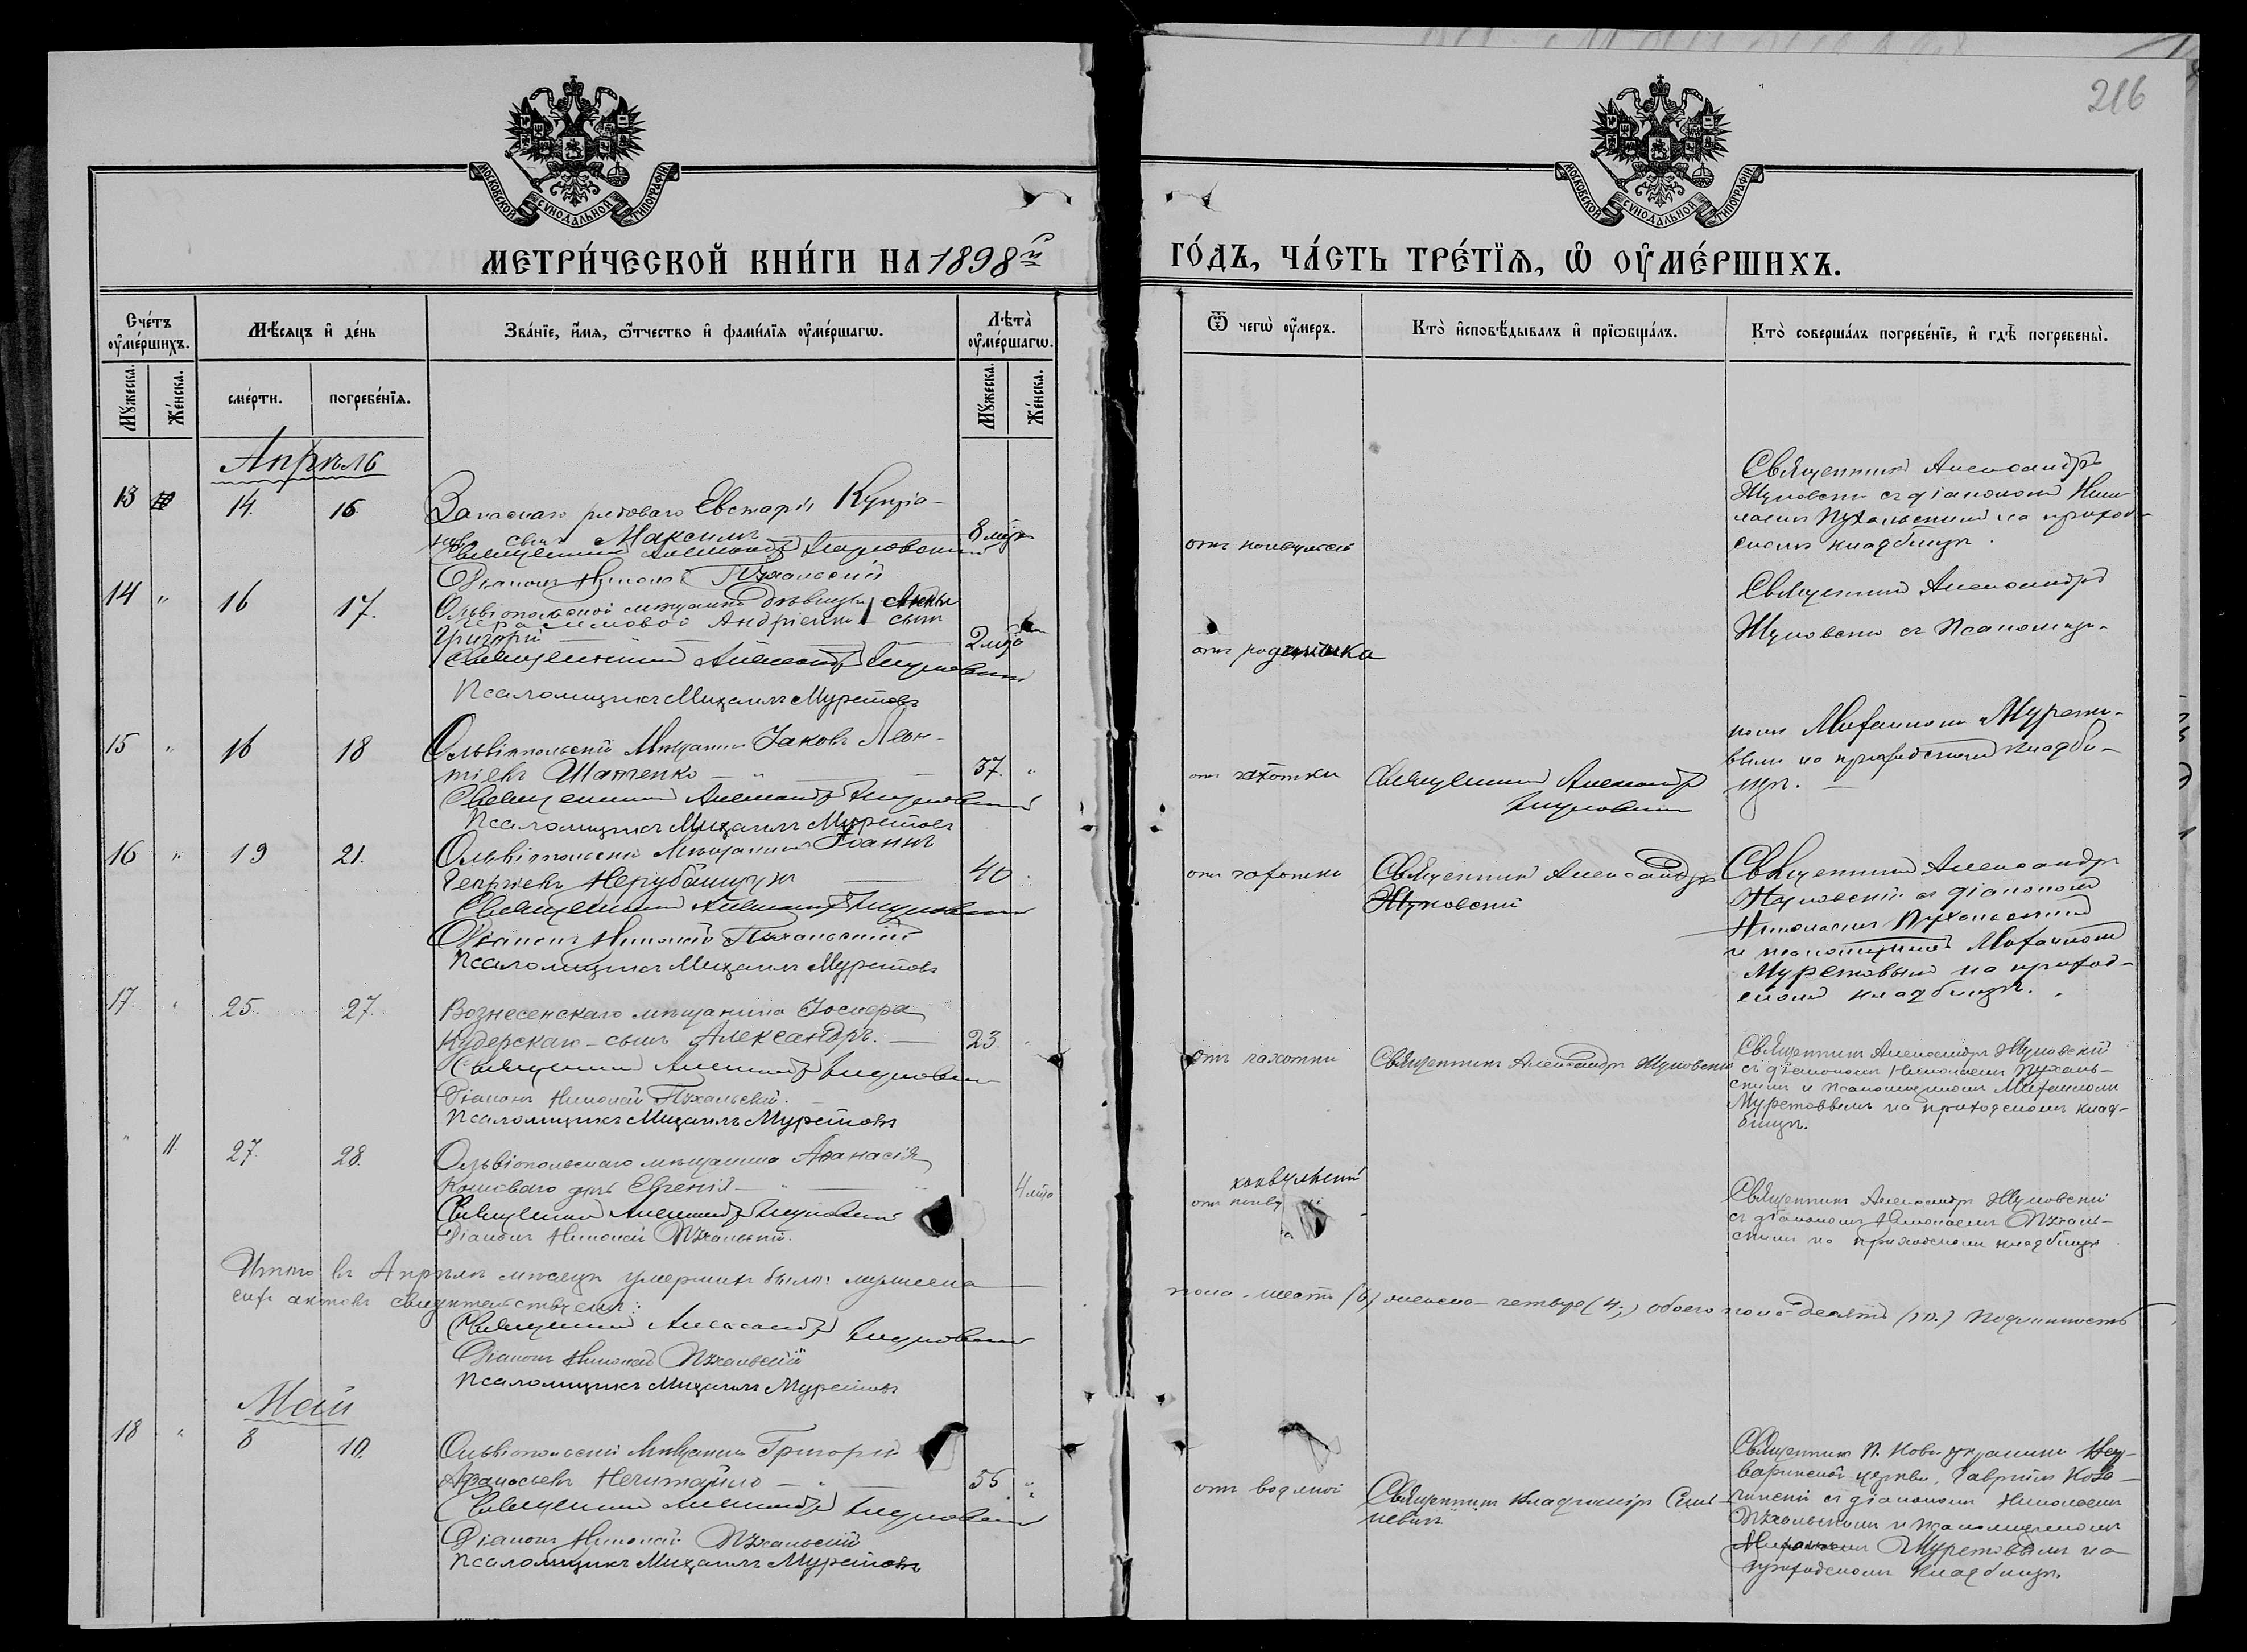 216
МОСКОВСКОЙ СѴНОДАЛЬНОЙ ТИПОГРАФІИ
МОСКОВСКОЙ СѴНОДАЛЬНОЙ ТИПОГРАФІИ
МЕТРИ́ЧЕСКОЙ КНИ́ГИ НА 1898й ГО́ДЪ, ЧА́СТЬ ТРЕ́ТЇѦ, Ѡ҆ ОУ҆МЕ́РШИХЪ.
Сче́тъ оу҆ме́ршихъ.
Мꙋ́жеска.
Же́нска.
Мѣ́сяцъ и҆ де́нь
сме́рти.
погребе́нїѧ.
Зва́нїе, и҆́мѧ, ѻ҆́тчество и҆ фами́лїѧ оу҆ме́ршагѡ.
Лѣ́та оу҆ме́ршагѡ.
Мꙋ́жеска.
Же́нска.
Ѿ чегѡ̀ оу҆́меръ.
Кто̀ и҆сповѣ́дывалъ и҆ прїѡбща́лъ.
Кто̀ соверша́лъ погребе́нїе, и҆ гдѣ̀ погребены̀.
Апрѣль
13 14. 16.
Запаснаго рядоваго Евстафія Купрія-
нова сынъ Максимъ 8 мѣс
Священникъ Александръ Жуковскій
Діаконъ Николай Пухальскій
отъ конвульсій
Священникъ Александръ
Жуковскій съ діакономъ Нико-
лаемъ Пухальскимъ на приход-
скомъ кладбищѣ.
14 " 16 17.
Ольвіопольской мѣщанки дѣвицы Анны
Герасимовой Андріенко сынъ
Григорій 2 мѣс
Священникъ Александръ Жуковскій
Псаломщикъ Михаилъ Муретовъ
отъ родимчика
Священникъ Александръ
Жуковскій съ Псаломщи-
комъ Михаиломъ Мурето-
вымъ на приходскомъ кладби-
щѣ.
15 " 16 18
Ольвіопольскій Мѣщанинъ Іаковъ Леон-
тіевъ Шатенко 37. "
Священникъ Александръ Жуковскій
Псаломщикъ Михаилъ Муретовъ
отъ чахотки
Священникъ Александръ
Жуковскій
16 " 19 21.
Ольвіопольскій Мѣщанинъ Іоаннъ
Георгіевъ Нерубащукъ 40
Священникъ Александръ Жуковскій
Діаконъ Николай Пухальскій
Псаломщикъ Михаилъ Муретовъ
отъ чахотки
Священникъ Александръ
Жуковскій
Священникъ Александръ
Жуковскій съ діакономъ
Николаемъ Пухальскимъ
и псаломщикомъ Михаиломъ
Муретовымъ на приход-
скомъ кладбищѣ.
17. " 25. 27.
Вознесенскаго мѣщанина Іосифа
Кудерскаго сынъ Александръ. 23.
Священникъ Александръ Жуковскій
Діаконъ Николай Пухальскій.
Псаломщикъ Михаилъ Муретовъ
отъ чахотки
Священникъ Александръ Жуковскій
Священникъ Александръ Жуковскій
съ діакономъ Николаемъ Пухаль-
скимъ и псаломщикомъ Михаиломъ
Муретовымъ на приходскомъ клад-
бищѣ.
" 11. 27. 28.
Ольвіопольскаго мѣщанина Аѳанасія
Кошеваго дочь Евгенія 4 мѣс
Священникъ Александръ Жуковскій
Діаконъ Николай Пухальскій.
конвульсій
отъ конву
Священникъ Александръ Жуковскій
съ діакономъ Николаемъ Пухаль-
скимъ на приходскомъ кладбищѣ
Итого въ Апрѣлѣ мѣсяцѣ умершихъ было: мужеска пола - шесть (6) женска - четыре (4;) обоего пола - десять (10.) Подлинность
сихъ актовъ свидѣтельствуемъ:
Священникъ Александръ Жуковскій
Діаконъ Николай Пухальскій
Псаломщикъ Михаилъ Муретовъ
Май
18 " 8 10.
Ольвіопольскій Мѣщанинъ Григорій
Аѳанасьевъ Нечитайло 55 "
Священникъ Александръ Жуковскій
Діаконъ Николай Пухальскій
Псаломщикъ Михаилъ Муретовъ
отъ водяной
Священникъ Владиміръ
Священникъ
церкви, Гавріилъ
съ діакономъ Николаемъ
Пухальскимъ и псаломщикомъ
Михаиломъ Муретовымъ на
приходскомъ кладбищѣ.